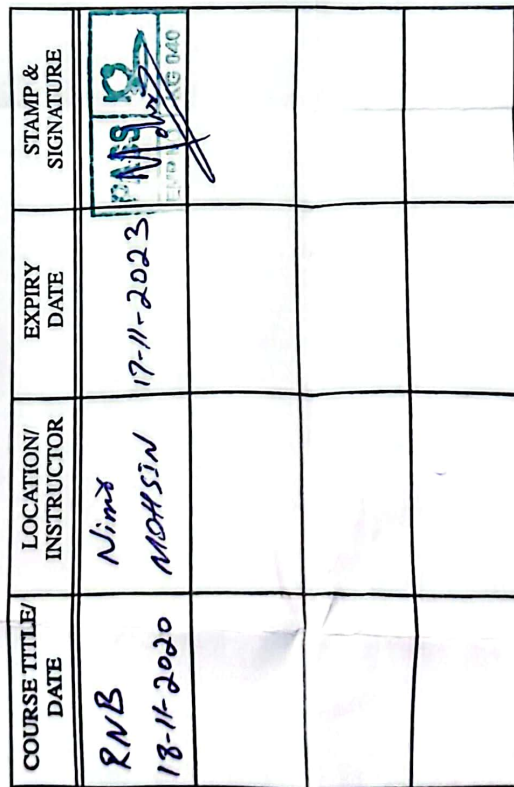 COURSE TITLE/
DATE
LOCATION/
INSTRUCTOR
EXPIRY
DATE
STAMP &
SIGNATURE
RNB
18-11-2020
Nimr
MOHSIN
17-11-2023
PASS
040